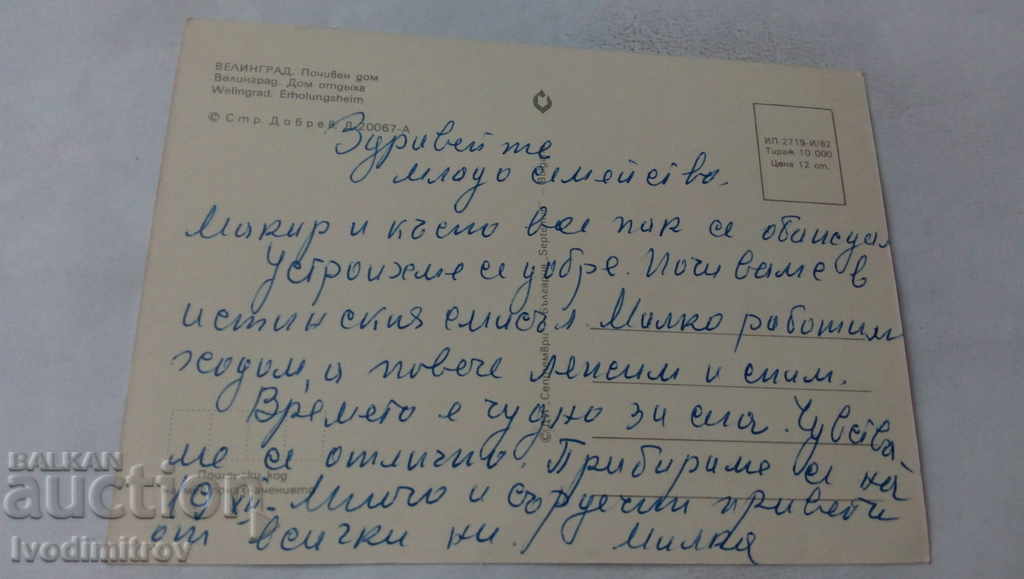 ВЕЛИНГРАД. Почивен дом
Велинград. Дом отдыха
Welingrad. Erholungsheim
© Стр. Добрев, Д-20067-А
ИП. 2719-И/82
Тираж 10 000
Цена 12 ст.
Здравейте
младо семейство.
Макар и късно все пак се обаждам
Устроихме се добре. Почиваме в
истинския смисъл Малко работим
ходом, а повече лежим и спим.
Времето е чудно за сега. Чувства
ме се отлично. Прибираме се на
19 XII. Минчо и сърдечни привети
от всички ни. / Милка
BALKAN
auction
Ivodimitrov